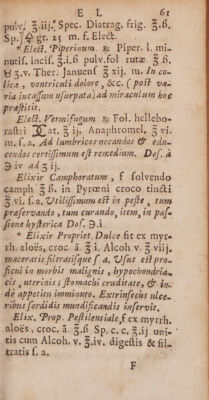 E L 61
pulv. ℥.iij. Spec. Diatrag. frig. ℥.ß.
Sp. 🜍 gt. 15 m. f. Elect.
* Elect. Piperinum. ℞ Piper. l. mi-
nutis. incis. ℥.iß pulv. fol rutæ ℥.ß
& ʒ.v. Ther. Januens ℥ xij. m. In co-
lica, ventriculi dolore, &c. (post va-
ria incassum usurpata) ad miraculum hoc
præstitit.
Elect. Vermifugum ℞ Fol. hellebo-
rastri at. ℥ ij. Anaphromel. ℥ vi.
m. s. a. Ad lumbricos necandos & edu-
cendos certissimum est remedium. Dos. à
℈ iv ad ʒ ij.
Elixir Camphoratum, f solvendo
camph ℥ ß. in Pyrœni croco tincti
℥ vi. s. a. Utilissimum est in peste, tum
præservando, tum curando, item, in pas-
sione hysterica Dos. ℈.i.
* Elixir Propriet. Dulce fit ex myr-
rh. aloës, croc ā ℥ i. Alcoh v. ℥ viij.
maceratis filtratisque s a. Usus est pro-
ficui in morbis malignis, hypochondria-
cis, uterinis; stomachi cruditate, & in-
de appetitu imminuto. Extrinsecus ulce-
ribus sordidis mundificandis inservit.
Elix. Prop. Pestilentiale, f ex myrrh.
aloës, croc, ā ℥.ß Sp. c. c. ℥.ij uni-
tis cum Alcoh. v. ℥.iv. digestis & fil-
tratis s. a.
F